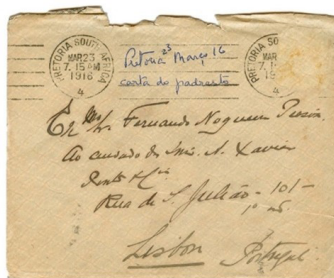 PRETORIA SOUTH AFRICA
MAR 23
7. 15 PM
1916
4
Pretoria 23 Março 16
carta do padrasto
PRETORIA SO
MAR
7. 1
19
4
Exmo Sr. Fernando Nogueira Pessoa
Ao cuidado do Snr. A. Xavier
Pinto & Cia
Rua de S. Julião - 101 -
1º
Lisbon
Portugal